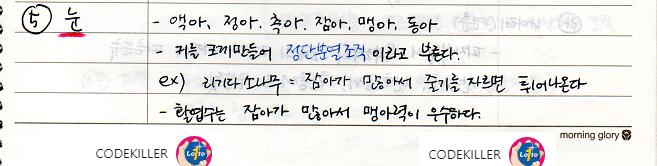 ⑤ 눈 - 액아, 정아, 측아, 잠아, 맹아, 동아
- 키를 크게만들어 정단분열조직 이라고 부른다.
ex) 리기다소나무 = 잠아가 많아서 줄기를 자르면 튀어나온다
- 활엽수는 잠아가 많아서 맹아력이 우수하다.
morning glory
CODEKILLER Lotto CODEKILLER Lotto